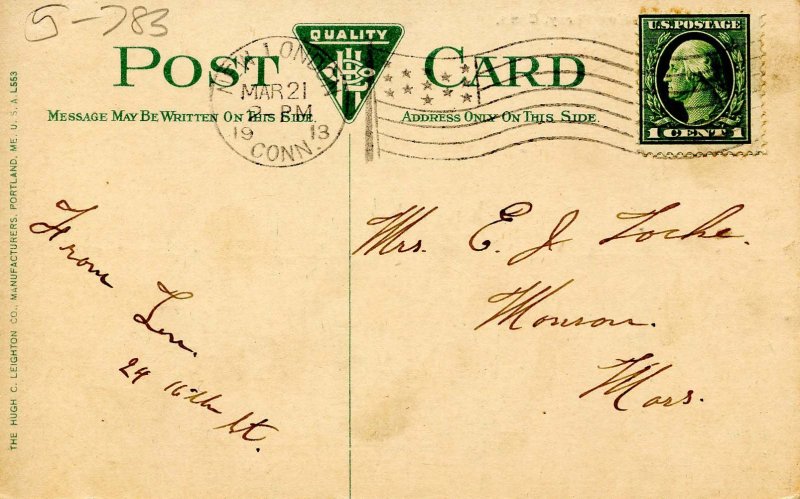 5-783
QUALITY
POST CARD
U.S. POSTAGE
1 CENT 1
NEW LONDON
MAR 21
PM
1913
CONN.
MESSAGE MAY BE WRITTEN ON THIS SIDE.
ADDRESS ONLY ON THIS SIDE.
THE HUGH C. LEIGHTON CO., MANUFACTURERS, PORTLAND, ME., U.S.A. L553
From
24 16th St.
Mrs. E. J. Locke.
Monson.
Mass.